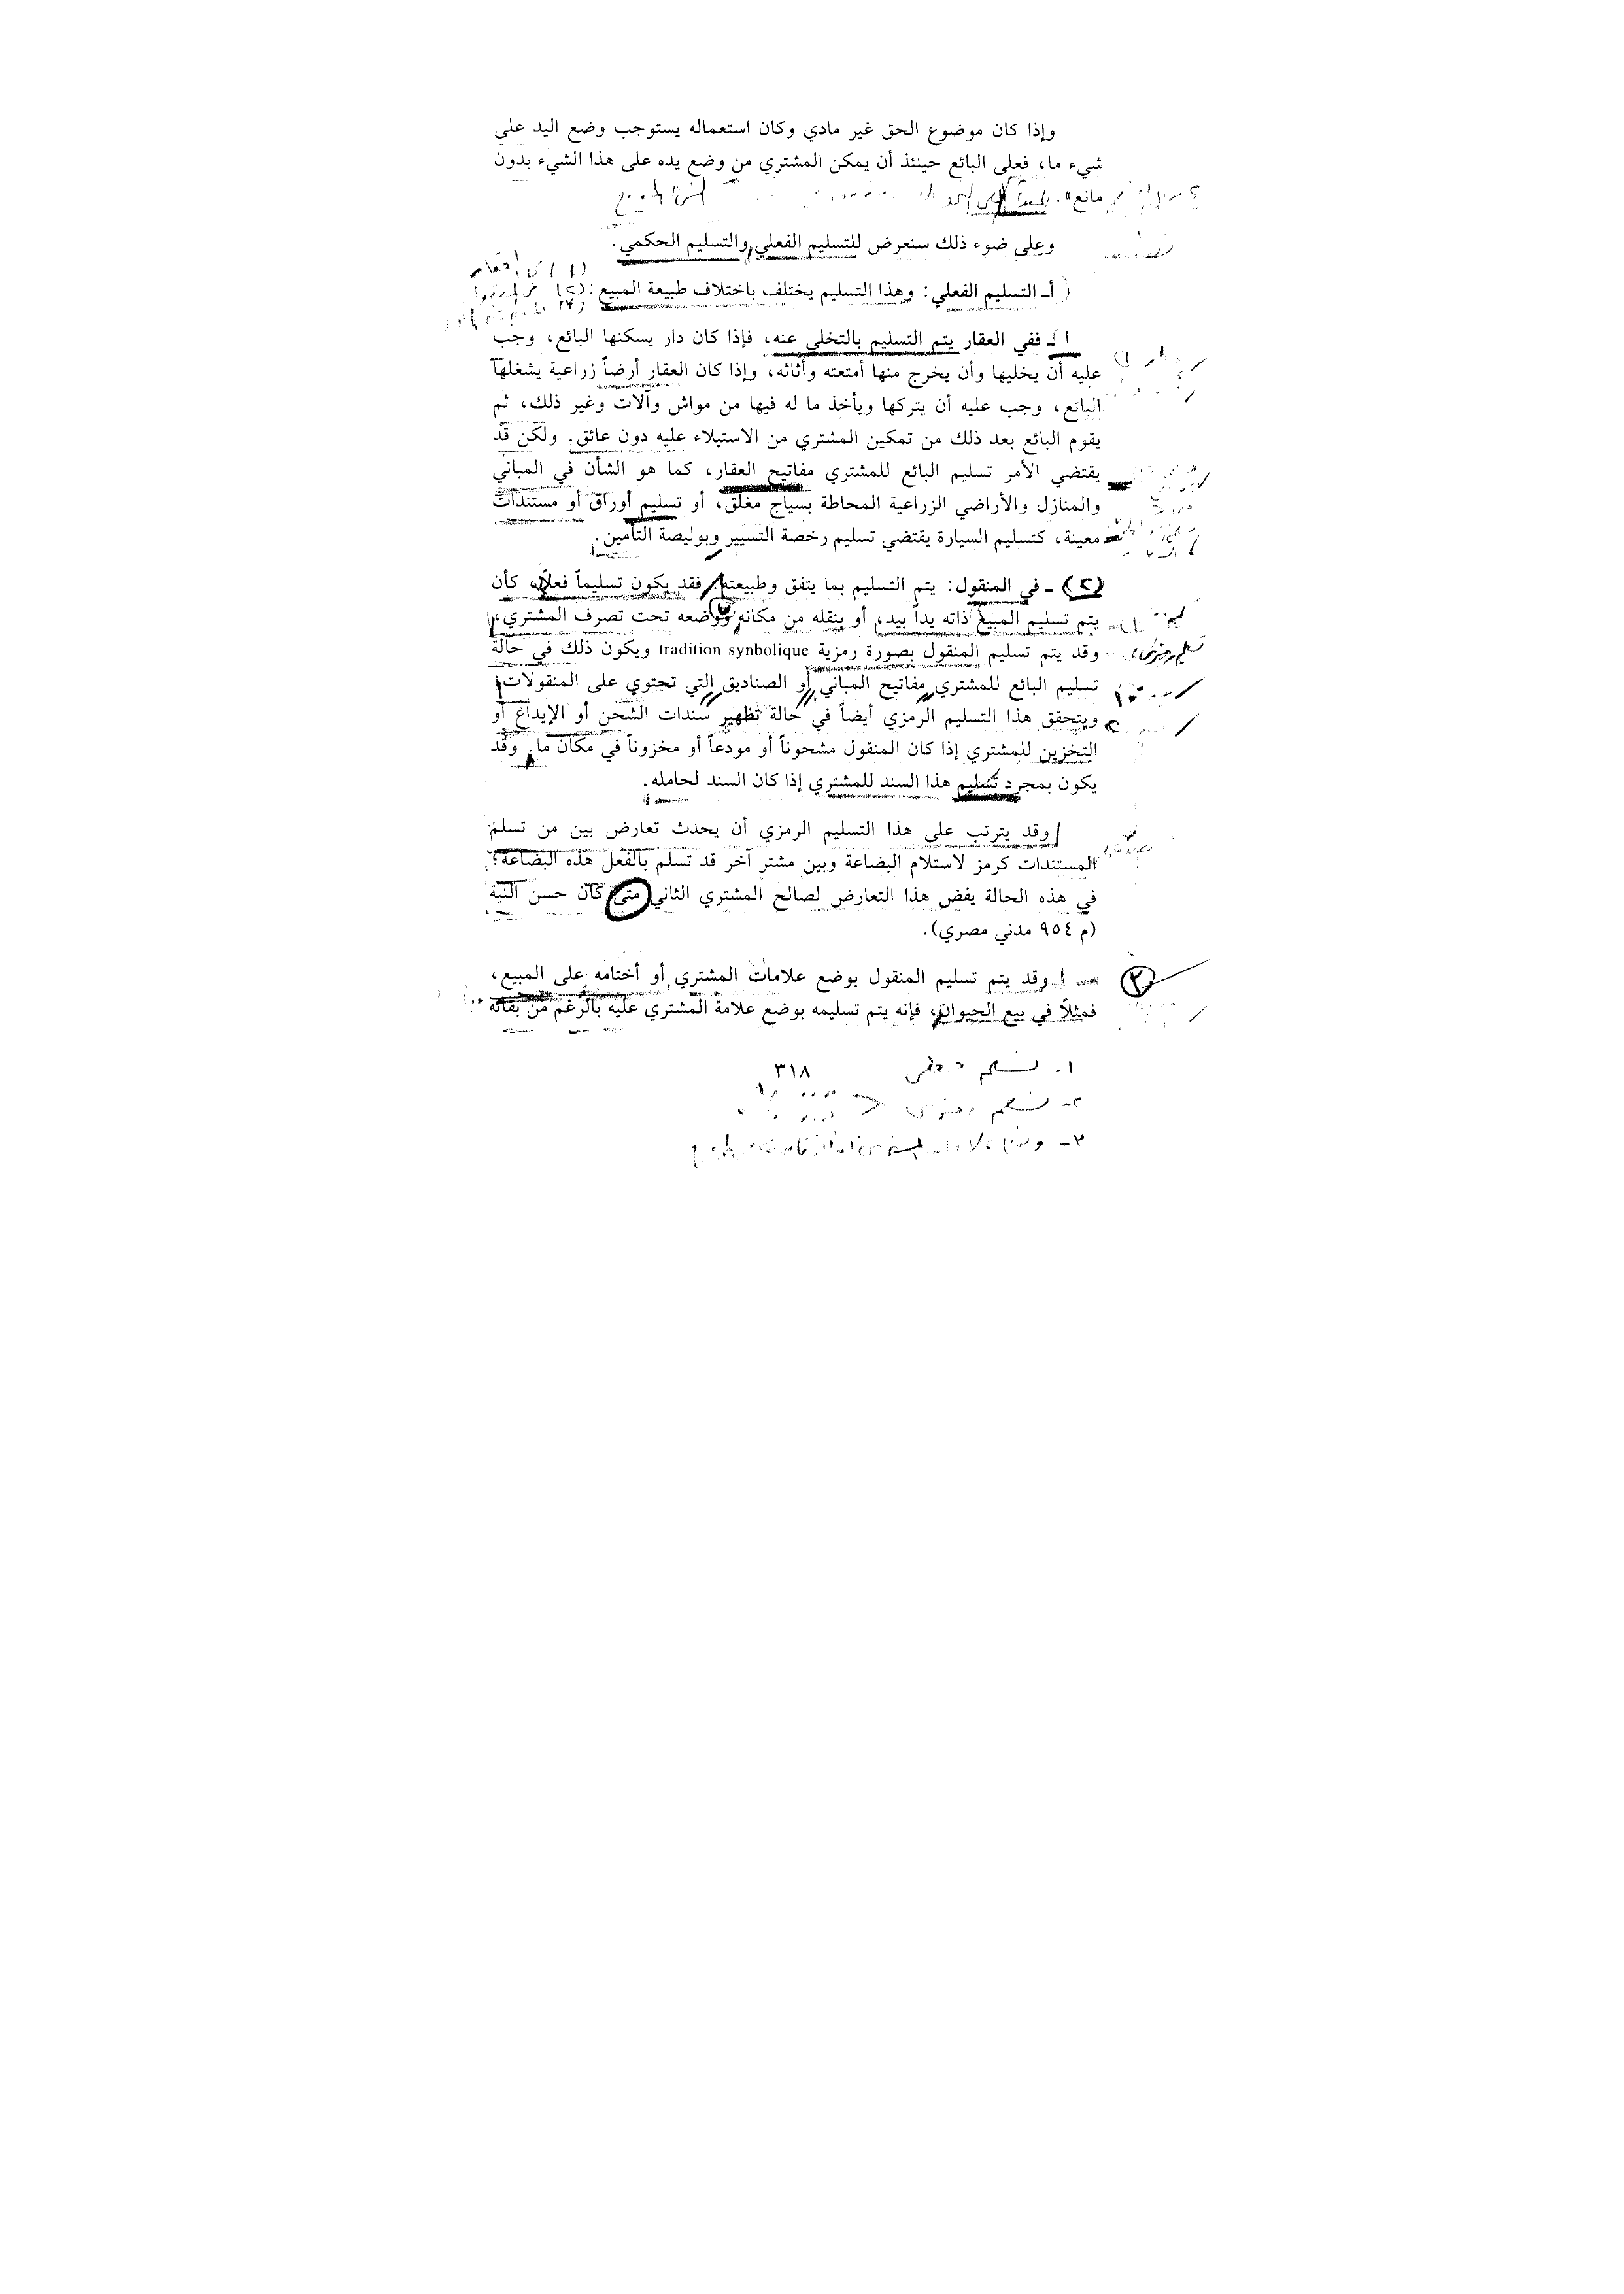 وإذا كان موضوع الحق غير مادي وكان استعماله يستوجب وضع اليد علي
شيء ما، فعلى البائع حينئذ أن يمكن المشتري من وضع يده على هذا الشيء بدون
مانع».
وعلى ضوء ذلك سنعرض للتسليم الفعلي والتسليم الحكمي.
أـ التسليم الفعلي: وهذا التسليم يختلف باختلاف طبيعة المبيع:
١ـ ففي العقار يتم التسليم بالتخلي عنه، فإذا كان دار يسكنها البائع، وجب
عليه أن يخليها وأن يخرج منها أمتعته وأثاثه، وإذا كان العقار أرضاً زراعية يشغلها
البائع، وجب عليه أن يتركها ويأخذ ما له فيها من مواش وآلات وغير ذلك، ثم
يقوم البائع بعد ذلك من تمكين المشتري من الاستيلاء عليه دون عائق. ولكن قد
يقتضي الأمر تسليم البائع للمشتري مفاتيح العقار، كما هو الشأن في المباني
والمنازل والأراضي الزراعية المحاطة بسياج مغلق، أو تسليم أوراق أو مستندات
معينة، كتسليم السيارة يقتضي تسليم رخصة التسيير وبوليصة التأمين.
(٢) ـ في المنقول: يتم التسليم بما يتفق وطبيعته. فقد يكون تسليماً فعلاً، كأن
يتم تسليم المبيع ذاته يداً بيد، أو بنقله من مكانه ووضعه تحت تصرف المشتري،
وقد يتم تسليم المنقول بصورة رمزية tradition synbolique ويكون ذلك في حالة
تسليم البائع للمشتري مفاتيح المباني أو الصناديق التي تحتوي على المنقولات،
ويتحقق هذا التسليم الرمزي أيضاً في حالة تظهير سندات الشحن أو الإيداع أو
التخزين للمشتري إذا كان المنقول مشحوناً أو مودعاً أو مخزوناً في مكان ما. وقد
يكون بمجرد تسليم هذا السند للمشتري إذا كان السند لحامله.
وقد يترتب على هذا التسليم الرمزي أن يحدث تعارض بين من تسلم
المستندات كرمز لاستلام البضاعة وبين مشتر آخر قد تسلم بالفعل هذه البضاعة؛
في هذه الحالة يفض هذا التعارض لصالح المشتري الثاني متى كان حسن النية
(م ٩٥٤ مدني مصري).
٢ وقد يتم تسليم المنقول بوضع علامات المشتري أو أختامه على المبيع،
فمثلاً في بيع الحيوان، فإنه يتم تسليمه بوضع علامة المشتري عليه بالرغم من بقائه
٣١٨